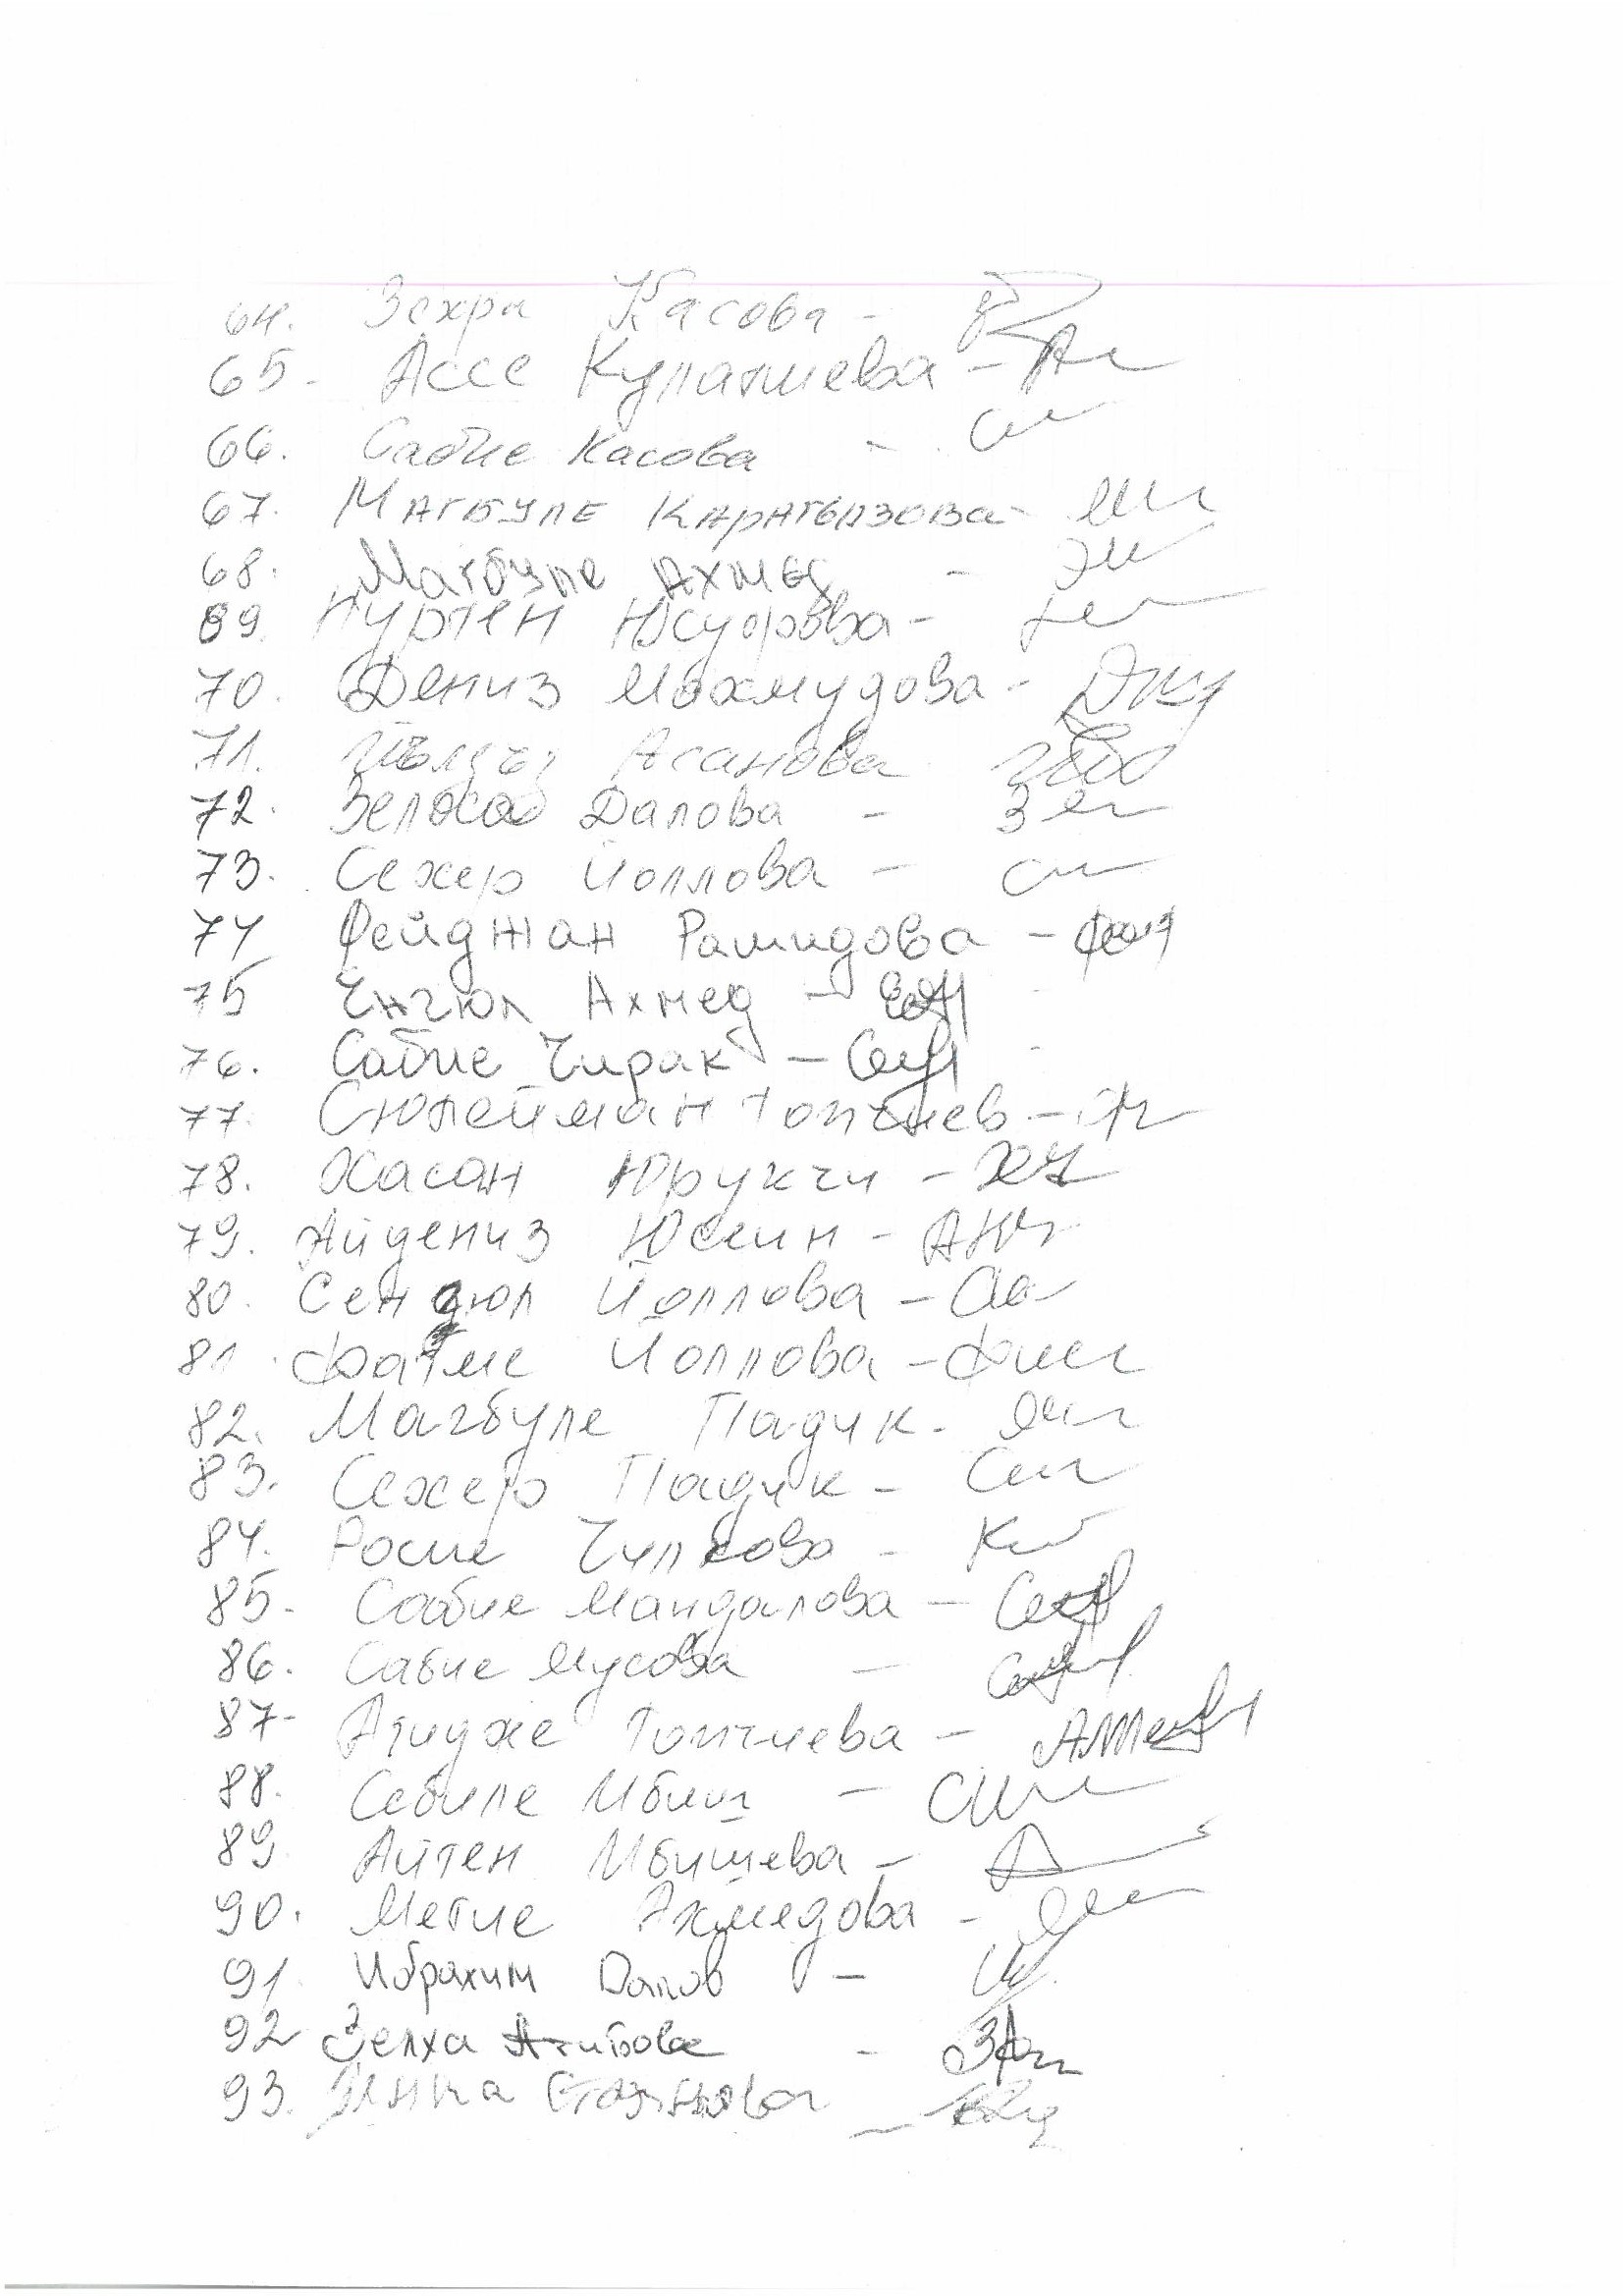 64. Зехра Касова -
65. Ассе Купатшева -
66. Сабие Касова -
67. Магбуле Карагьозова -
68. Магбуле Ахмед -
69. Нуртен Юсуфова -
70. Дениз Махмудова -
71. Асанова
72. Далова -
73. Сехер Йоллова -
74 Фейджан Рашидова -
75 Енгюл Ахмед -
76. Сабие Чирак -
77. Сюлейман Топчиев -
78. Хасан Юрукчи -
79. Айдениз Юсеин -
80. Сенгюл Йоллова -
81. Фатме Йоллова -
82. Магбуле Падик -
83. Сехер Падик -
84. Чилкова -
85. Сабие Мандалова -
86. Сабие Мусова -
87. Атидже Топчиева -
88. Себиле Ибиш -
89. Айтен Ибишева -
90. Метие Ахмедова -
91. Ибрахим Далов -
92 Зелха -
93.